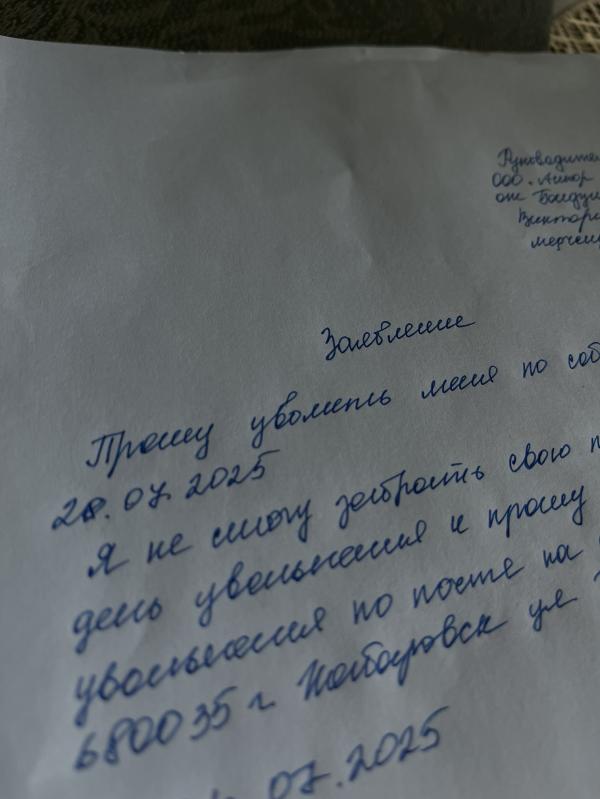 Руководите
ООО
от
Виктори
Заявление
Прошу уволить меня по соб
28.07.2025
Я не смогу забрать свою
день увольнения и прошу
увольнения по почте на
680035 г Хабаровск ул
07.2025